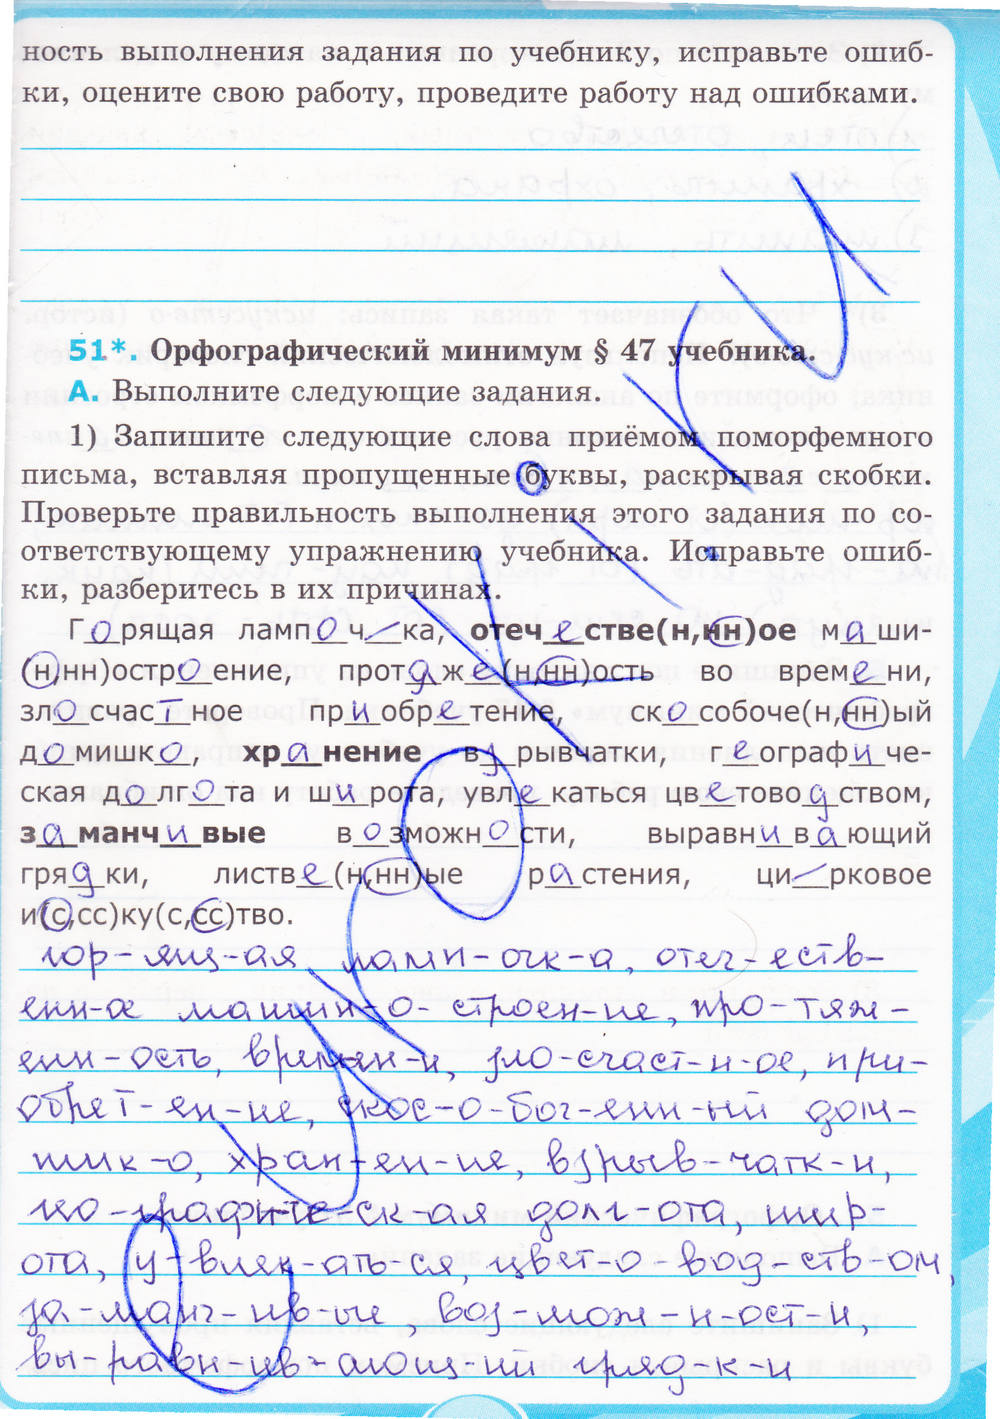 ность выполнения задания по учебнику, исправьте ошиб-
ки, оцените свою работу, проведите работу над ошибками.
51*. Орфографический минимум § 47 учебника.
А. Выполните следующие задания.
1) Запишите следующие слова приёмом поморфемного
письма, вставляя пропущенные буквы, раскрывая скобки.
Проверьте правильность выполнения этого задания по со-
ответствующему упражнению учебника. Исправьте ошиб-
ки, разберитесь в их причинах.
Горящая лампоч_ка, отечестве(н,нн)ое маши-
(н,нн)остраение, протдже(н,нн)ость во времени,
злосчастное приобретение, скособоче(н,нн)ый
домишко, хранение взрывчатки, географиче-
ская долгота и широта, увлекаться цветоводством,
заманчивые возможности, выравнивающий
грядки, листве(н,нн)ые растения, ци_рковое
и(с,сс)ку(с,сс)тво.
гор-ящ-ая ламп-очк-а, отеч-еств-
енн-ое машин-о-строен-ие, про-тяж-
енн-ость, времен-и, зло-счаст-н-ое, при-
обрет-ен-ие, скос-о-боч-енн-ый дом-
ишк-о, хран-ен-ие, взрыв-чатк-и,
гео-графиче-ск-ая долг-ота, шир-
ота, у-влек-ать-ся, цвет-о-вод-ств-ом,
за-манч-ив-ые, воз-мож-н-ост-и,
вы-равн-ив-ающ-ий гряд-к-и
УРОКИ